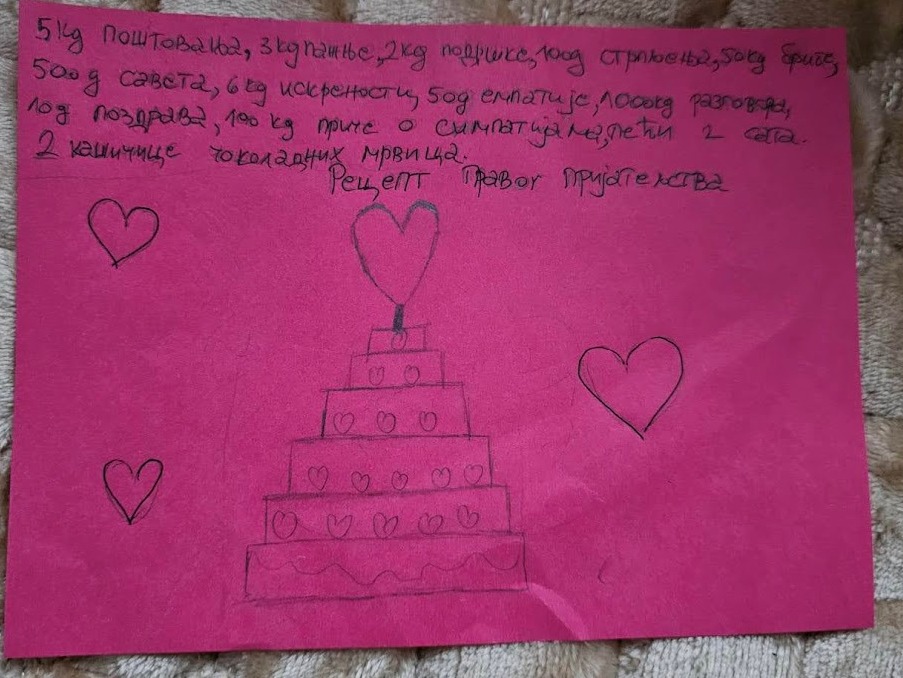 5kg поштовања, 3kg пажње, 2kg подршке, 100g стрпљења, 50kg бриге,
500g савета, 6kg искрености, 50g емпатије, 1000kg разговора,
10g поздрава, 100kg приче о симпатијама, пећи 2 сата.
2 кашичице чоколадних мрвица.
Рецепт правог пријатељства